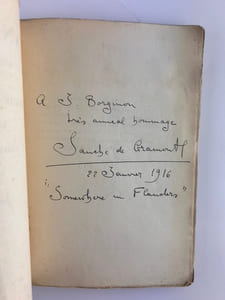 A J. Borginon
très amical hommage
Sanche de Gramont
22 Janvier 1916
"Somewhere in Flanders"